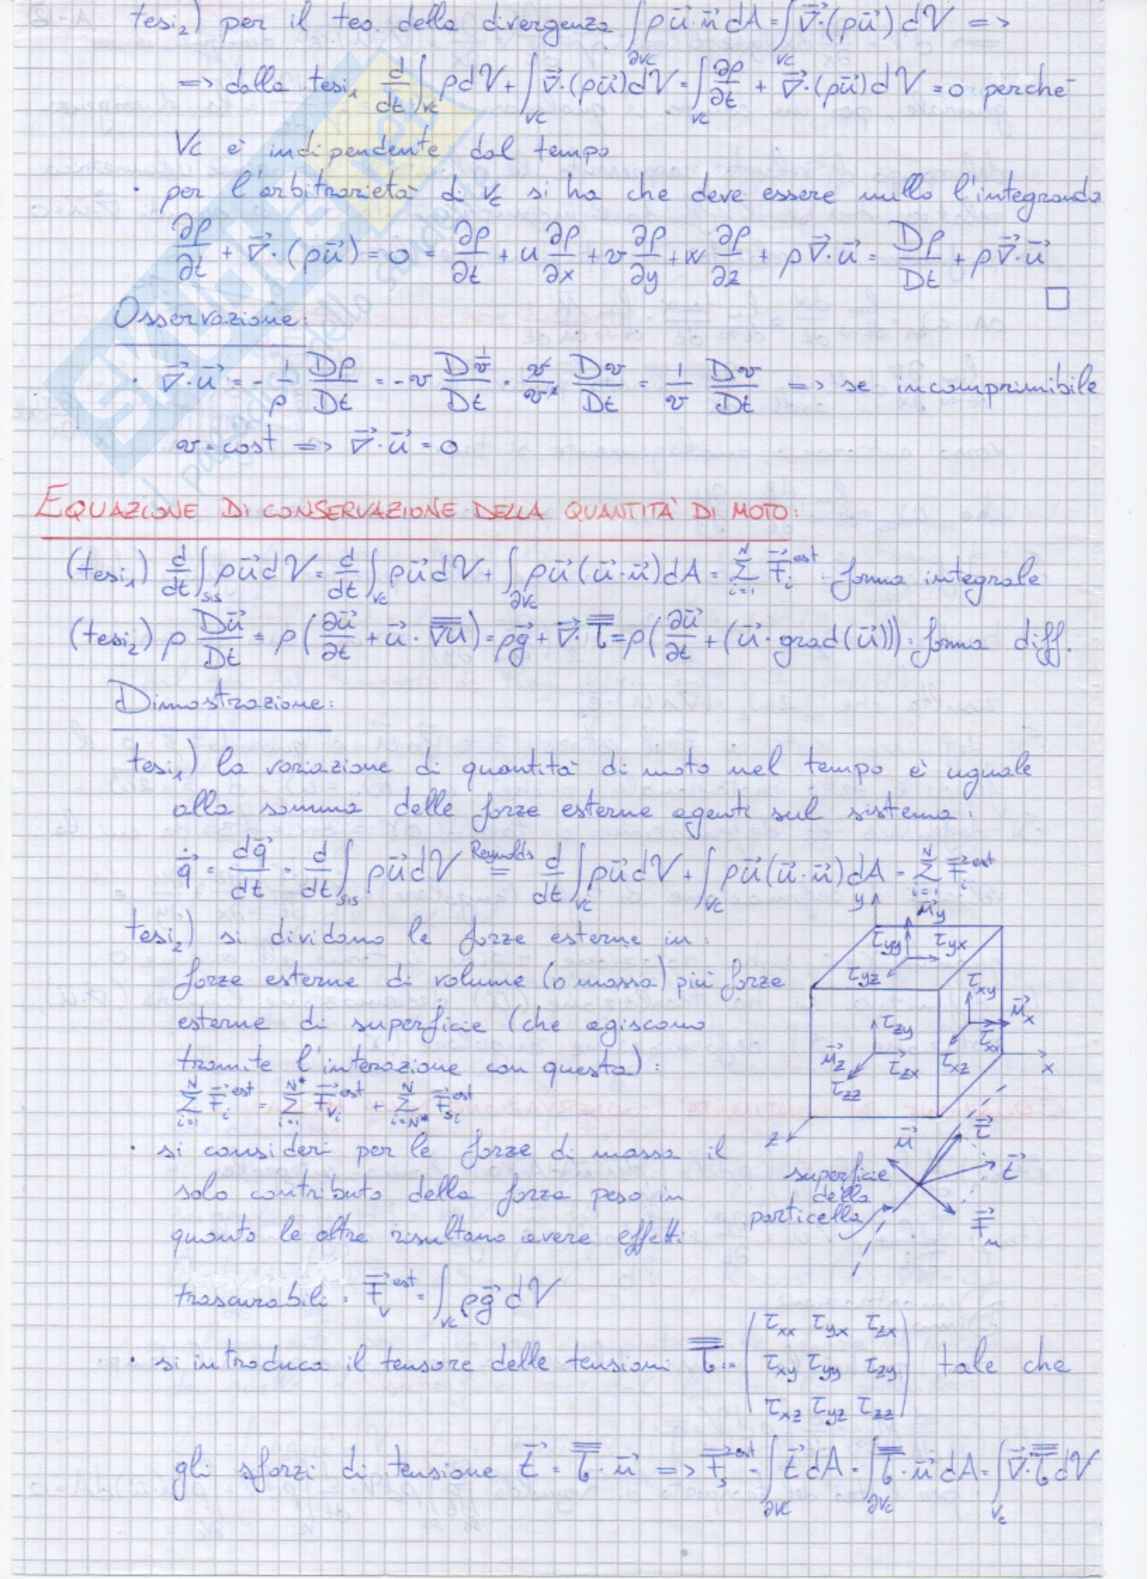 tesi₂) per il teo. della divergenza ∫_∂Vc ρu⃗·n⃗ dA = ∫_Vc ∇⃗·(ρu⃗) dV =>
=> dalla tesi₁ d/dt ∫_Vc ρdV + ∫_Vc ∇⃗·(ρu⃗)dV = ∫_Vc ∂ρ/∂t + ∇⃗·(ρu⃗)dV = 0 perché
Vc è indipendente dal tempo
· per l'arbitrarietà di Vc si ha che deve essere nullo l'integrando
∂ρ/∂t + ∇⃗·(ρu⃗) = 0 = ∂ρ/∂t + u ∂ρ/∂x + v ∂ρ/∂y + w ∂ρ/∂z + ρ∇⃗·u⃗ = Dρ/Dt + ρ∇⃗·u⃗
Osservazione:
· ∇⃗·u⃗ = - 1/ρ Dρ/Dt = -v D(1/v)/Dt = v/v² Dv/Dt = 1/v Dv/Dt => se incomprimibile
v = cost => ∇⃗·u⃗ = 0
EQUAZIONE DI CONSERVAZIONE DELLA QUANTITÀ DI MOTO:
(tesi₁) d/dt ∫_sis ρu⃗dV = d/dt ∫_Vc ρu⃗dV + ∫_∂Vc ρu⃗(u⃗·n⃗)dA = Σ_{i=1}^N F⃗_i^est : forma integrale
(tesi₂) ρ Du⃗/Dt = ρ(∂u⃗/∂t + u⃗·∇u) = ρg⃗ + ∇⃗·τ = ρ(∂u⃗/∂t + (u⃗·grad(u⃗))) : forma diff.
Dimostrazione:
tesi₁) la variazione di quantità di moto nel tempo è uguale
alla somma delle forze esterne agenti sul sistema:
q⃗̇ = dq⃗/dt = d/dt ∫_sis ρu⃗dV =(Reynolds) d/dt ∫_Vc ρu⃗dV + ∫_Vc ρu⃗(u⃗·n⃗)dA = Σ_{i=1}^N F⃗_i^est
tesi₂) si dividono le forze esterne in:
forze esterne di volume (o massa) più forze
esterne di superficie (che agiscono
tramite l'interazione con questa):
Σ_{i=1}^N F⃗_i^est = Σ_{i=1}^{N*} F⃗_Vi^est + Σ_{i=N*}^N F⃗_Si^est
y n⃗_y
τ_yy τ_yx
τ_yz
τ_xy n⃗_x
τ_zy τ_xx
n⃗_z τ_zx τ_xz
τ_zz x
z
· si consideri per le forze di massa il
solo contributo della forza peso in
quanto le altre risultano avere effetti
trascurabili: F⃗_V^est = ∫_Vc ρg⃗ dV
n⃗ τ⃗
superficie t⃗
della
particella F⃗_n
· si introduca il tensore delle tensioni τ := (τ_xx τ_yx τ_zx
τ_xy τ_yy τ_zy
τ_xz τ_yz τ_zz) tale che
gli sforzi di tensione t⃗ = τ·n⃗ => F⃗_S^est = ∫_∂Vc t⃗ dA = ∫_∂Vc τ·n⃗ dA = ∫_Vc ∇⃗·τ dV